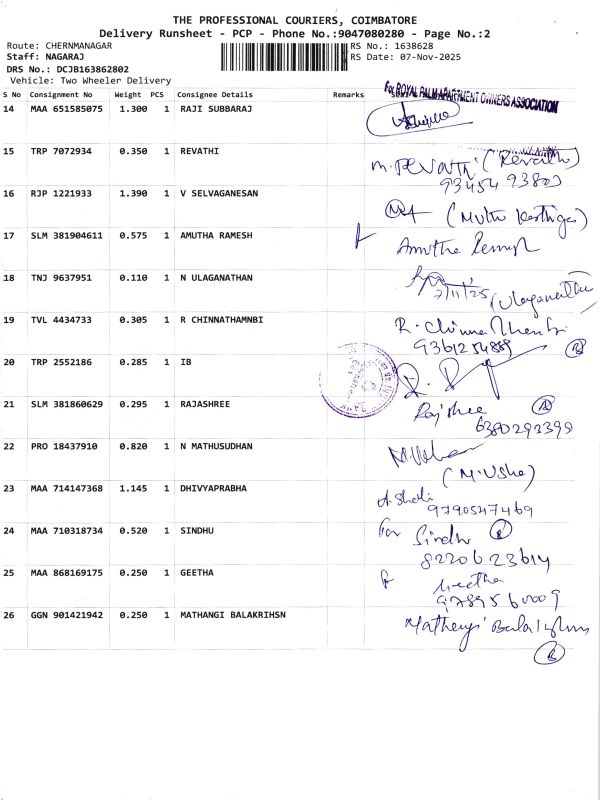 THE PROFESSIONAL COURIERS, COIMBATORE
Delivery Runsheet - PCP - Phone No.:9047080280 - Page No.:2
Route: CHERNMANAGAR RS No.: 1638628
Staff: NAGARAJ RS Date: 07-Nov-2025
DRS No.: DCJB163862802
Vehicle: Two Wheeler Delivery
S No Consignment No Weight PCS Consignee Details Remarks
For ROYAL PALM APARTMENT OWNERS ASSOCIATION
14 MAA 651585075 1.300 1 RAJI SUBBARAJ
15 TRP 7072934 0.350 1 REVATHI
(Revathi)
93454 93803
16 RJP 1221933 1.390 1 V SELVAGANESAN
(Muthu Karthiga)
17 SLM 381904611 0.575 1 AMUTHA RAMESH
Amutha Ramesh
18 TNJ 9637951 0.110 1 N ULAGANATHAN
7/11/25 (Ulaganathan
19 TVL 4434733 0.305 1 R CHINNATHAMNBI
R. Chinna Thambi
9361254889
20 TRP 2552186 0.285 1 IB
21 SLM 381860629 0.295 1 RAJASHREE
Rajshree
6380293399
22 PRO 18437910 0.820 1 N MATHUSUDHAN
(M.Usha)
23 MAA 714147368 1.145 1 DHIVYAPRABHA
9790547469
24 MAA 710318734 0.520 1 SINDHU
For Sindhu
8220623614
25 MAA 868169175 0.250 1 GEETHA
Geetha
9789560009
26 GGN 901421942 0.250 1 MATHANGI BALAKRIHSN